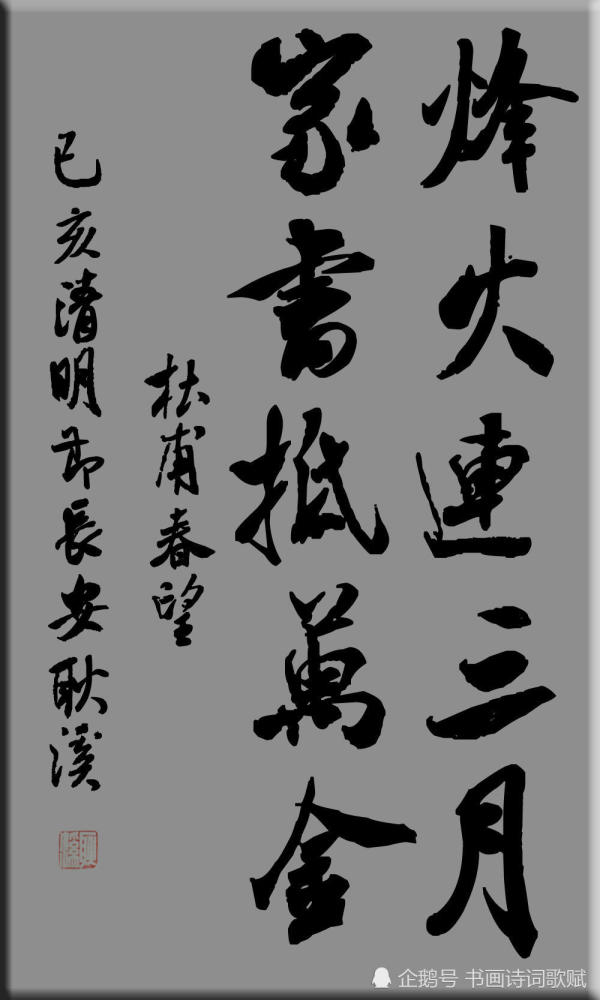 烽火連三月
家書抵萬金
杜甫春望
己亥清明節長安耿溪
企鹅号 书画诗词歌赋